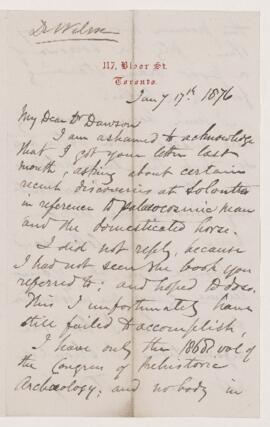 Dr Wilson
117, Bloor St.
Toronto.
Jany 17th 1876
My Dear Dr Dawson
I am ashamed to acknowledge
that I got your letter last
month, asking about certain
recent discoveries at Solutré
in reference to palaeocosmic man
and the domesticated horse.
I did not reply, because
I had not seen the book you
referred to; and hoped to do so.
This I unfortunately have
still failed to accomplish.
I have only the 1868 vol of
the Congress of Prehistoric
Archaeology; and nobody in